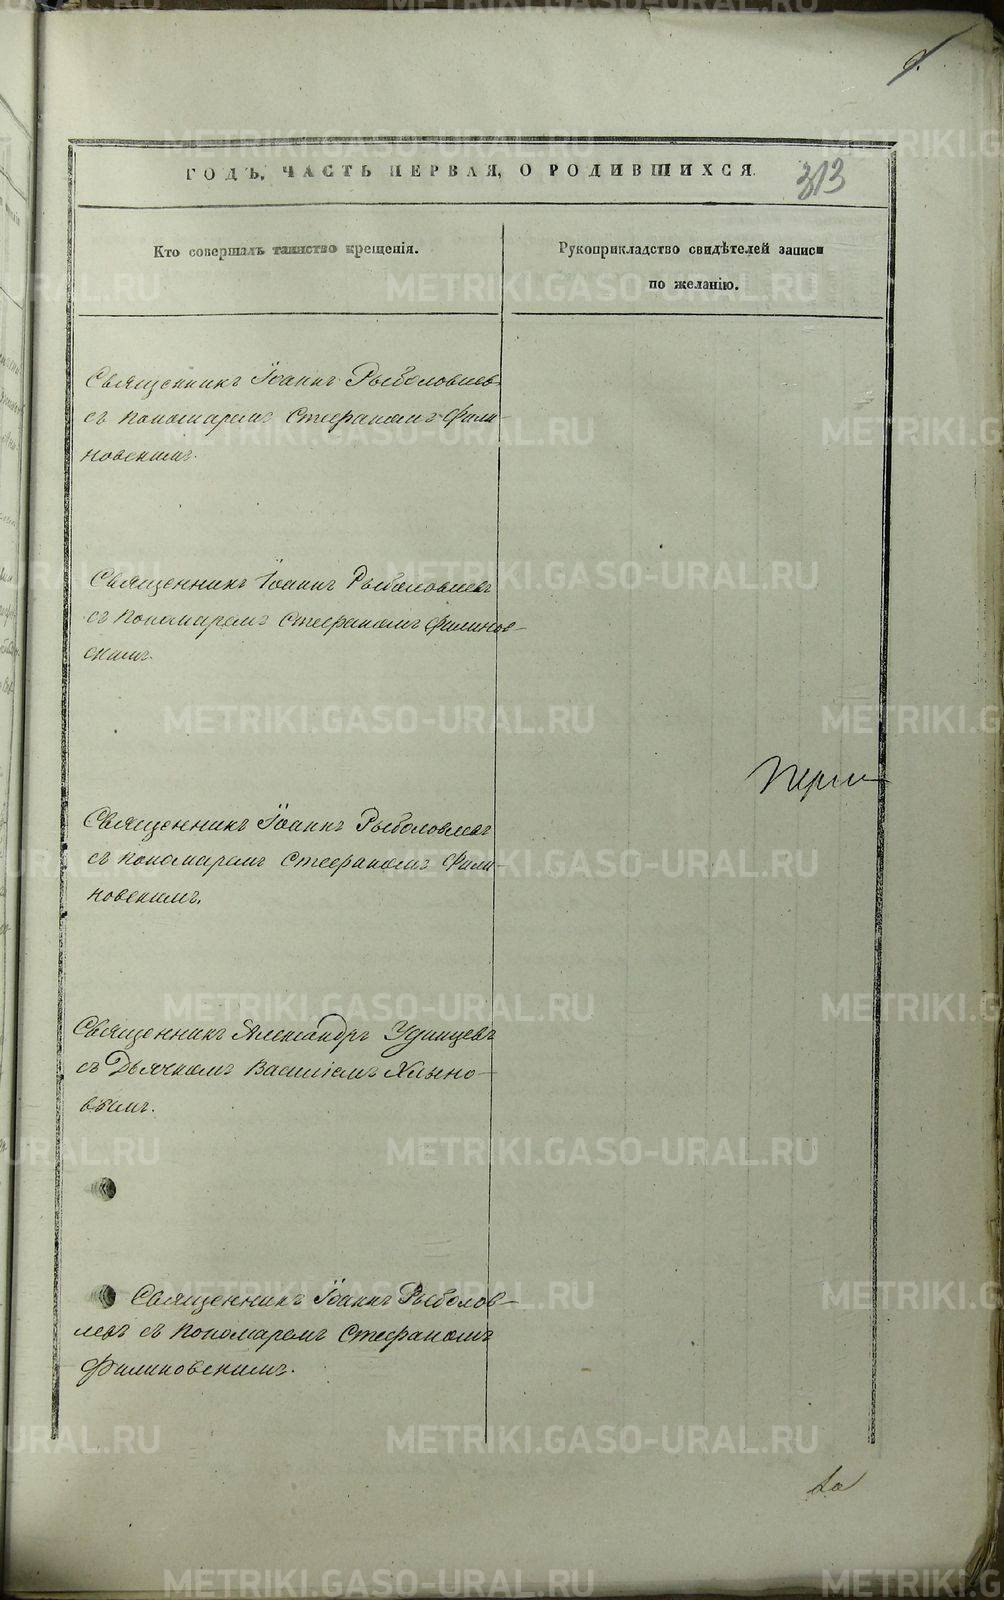 ГОДЪ, ЧАСТЬ ПЕРВАЯ, О РОДИВШИХСЯ.
313
Кто совершалъ таинство крещенія.
Рукоприкладство свидѣтелей записи
по желанію.
Священникъ Іоаннъ Рыболовлев
съ пономаремъ Стефаномъ Фили-
новскимъ.
Священникъ Іоаннъ Рыболовлевъ
съ пономаремъ Стефаномъ Филинов-
скимъ.
Священникъ Іоаннъ Рыболовлевъ
съ пономаремъ Стефаномъ Фили-
новскимъ.
Священникъ Александръ Удинцевъ
съ Дьячкомъ Василіемъ Хлыно-
вымъ.
Священникъ Іоаннъ Рыболов-
левъ съ пономаремъ Стефаномъ
Филиновскимъ.
METRIKI.GASO-URAL.RU